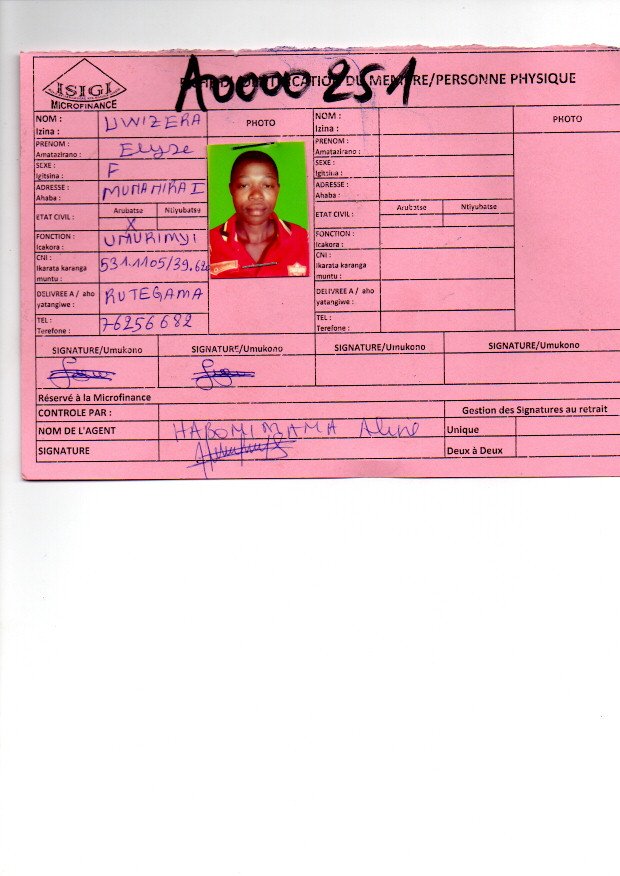 A0000251
ISIGI
MICROFINANCE
FICHE D'IDENTIFICATION DU MEMBRE/PERSONNE PHYSIQUE
NOM :
Izina :
UWIZERA
PHOTO
PRENOM :
Amatazirano :
Elyse
SEXE :
Igitsina :
F
ADRESSE :
Ahaba :
MUNANIRA I
ETAT CIVIL :
Arubatse Ntiyubatse
X
FONCTION :
Icakora :
UMURIMYI
CNI :
Ikarata karanga
muntu :
531.1105/39.620
DELIVREE A / aho
yatangiwe :
RUTEGAMA
TEL :
Terefone :
76256682
NOM :
Izina :
PHOTO
PRENOM :
Amatazirano :
SEXE :
Igitsina :
ADRESSE :
Ahaba :
ETAT CIVIL :
Arubatse Ntiyubatse
FONCTION :
Icakora :
CNI :
Ikarata karanga
muntu :
DELIVREE A / aho
yatangiwe :
TEL :
Terefone :
SIGNATURE/Umukono SIGNATURE/Umukono SIGNATURE/Umukono SIGNATURE/Umukono
Réservé à la Microfinance
CONTROLE PAR : Gestion des Signatures au retrait
NOM DE L'AGENT HABONIMANA Aline Unique
SIGNATURE Deux à Deux